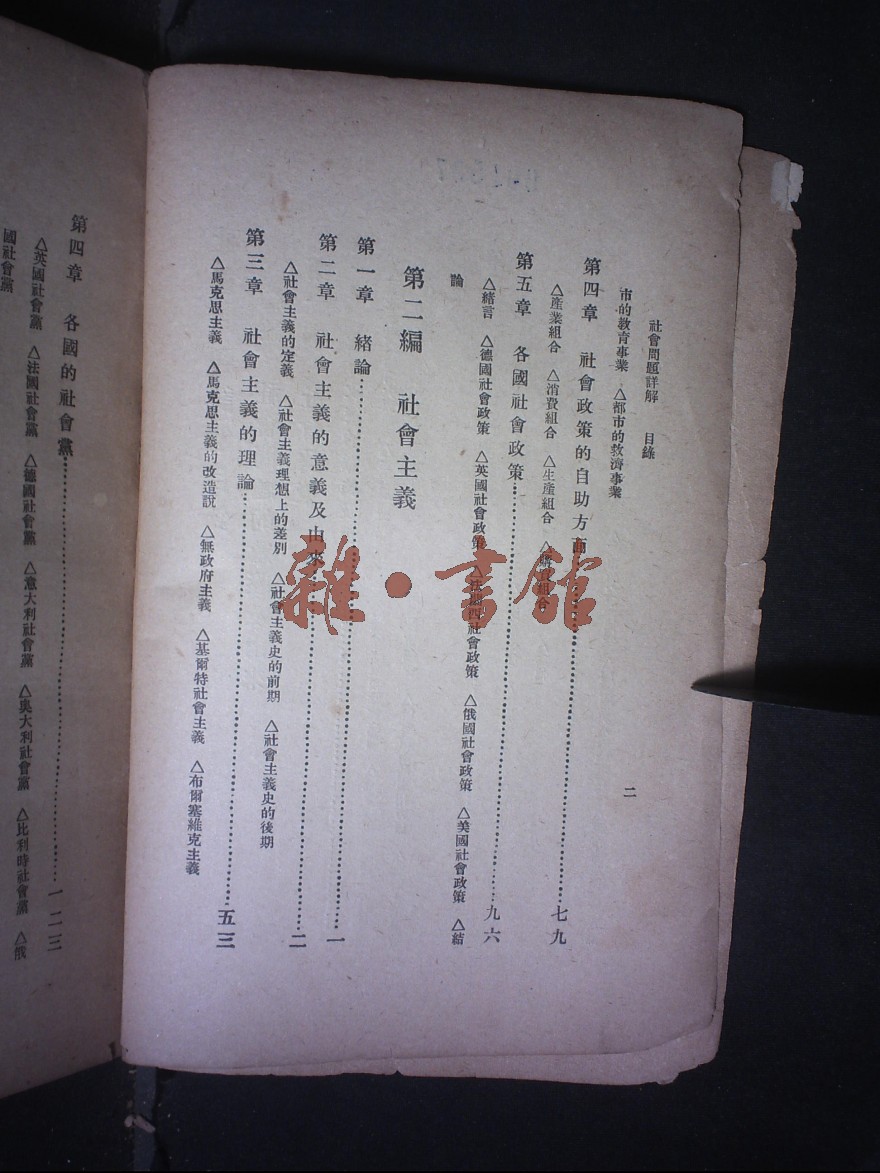 社會問題詳解　目錄　二
市的教育事業　△都市的救濟事業
第四章　社會政策的自助方面……七九
△產業組合　△消費組合　△生產組合　△購買組合
第五章　各國社會政策……九六
△緒言　△德國社會政策　△英國社會政策　△法蘭西社會政策　△俄國社會政策　△美國社會政策　△結
論
第二編　社會主義
第一章　緒論……一
第二章　社會主義的意義及由來……二
△社會主義的定義　△社會主義理想上的差別　△社會主義史的前期　△社會主義史的後期
第三章　社會主義的理論……五三
△馬克思主義　△馬克思主義的改造說　△無政府主義　△基爾特社會主義　△布爾塞維克主義
第四章　各國的社會黨……一二三
△英國社會黨　△法國社會黨　△德國社會黨　△意大利社會黨　△奧大利社會黨　△比利時社會黨　△俄
國社會黨
雜·書館